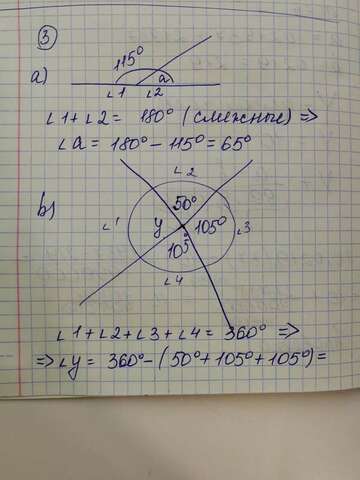 3
a) 115° a
∠1 ∠2
∠1 + ∠2 = 180° (смежные) =>
∠a = 180° - 115° = 65°
∠2
b) 50°
∠1 y 105° ∠3
105
∠4
∠1 + ∠2 + ∠3 + ∠4 = 360° =>
=> ∠y = 360° - (50° + 105° + 105°) =